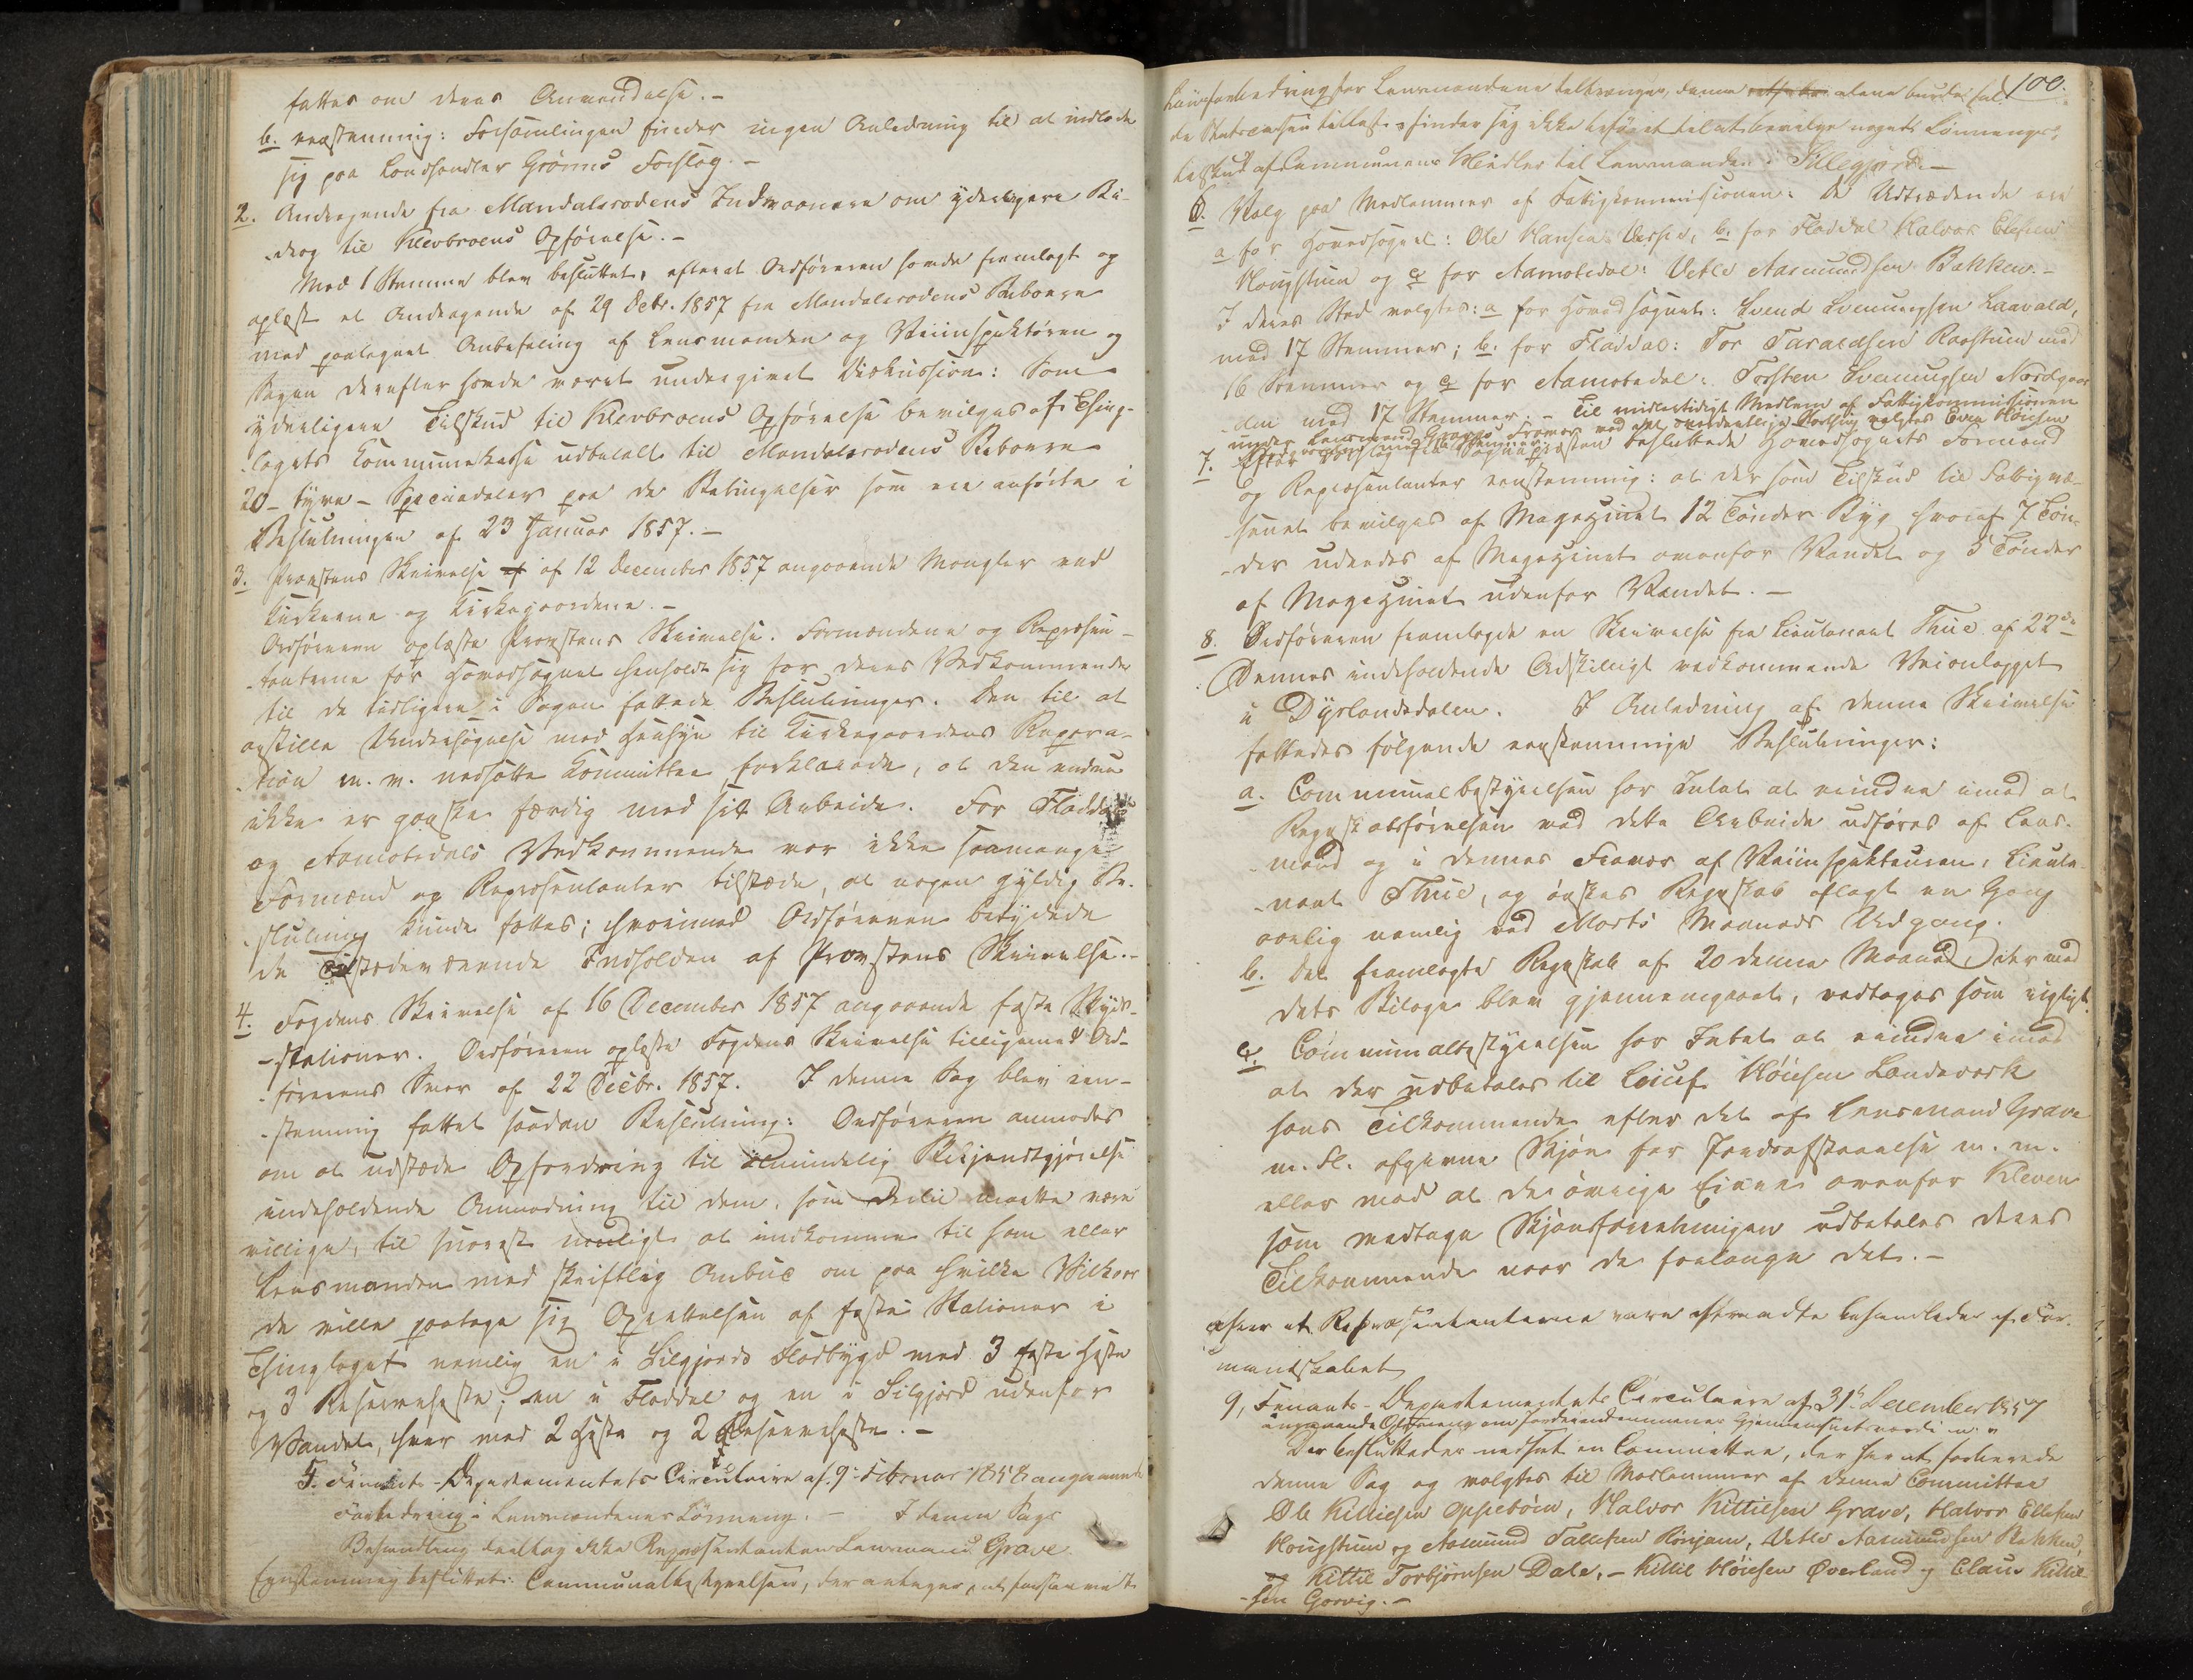 fattes om deres Anvendelse. –
b. eenstemmig: Forsamlingen finder ingen Anledning til at indlade
sig paa Landhandler Grönns Forslag. –
2. Andragende fra Mandalsrodens Indvaanere om yderligere Bi-
-drag til Klevbroens Opførelse. –
Med 1 Stemme blev besluttet, efterat Ordføreren havde fremlagt og
oplæst et Andragende af 29 Octbr. 1857 fra Mandalsrodens Beboere
med paategnet Anbefaling af Lensmanden og Veiinspektøren og
Sagen derefter havde været undergivet Diskussion: Som
yderligere Tilskud til Klevbroens Opførelse bevilges af Thing-
-lagets Kommunekasse udbetalt til Mandalsrodens Beboere
20 – tyve – Speciedaler paa de Betingelser som ere anførte i
Beslutningen af 23 Januar 1857. –
3. Provstens Skrivelse af 12 December 1857 angaaende Mangler ved
Kirkerne og Kirkegaardene. –
Ordføreren oplæste Provstens Skrivelse. Formændene og Repræsen-
-tanterne for Hovedsognet henholdt sig for deres Vedkommende
til de tidligere i Sagen fattede Beslutninger. Den til at
anstille Undersøgelse med Hensyn til Kirkegaardens Repara-
-tion m. v. nedsatte Kommittee forklarede, at den endnu
ikke er ganske færdig med sit Arbeide. For Fladdals
og Aamotsdals Vedkommende var ikke saamange
Formænd og Repræsentanter tilstæde, at nogen gyldig Be-
-slutning kunde fattes; hvorimod Ordføreren betydede
de Tilstædeværende Indholden af Provstens Skrivelse. –
4. Fogdens Skrivelse af 16 December 1857 angaaende faste Skyds-
-stationer. Ordføreren oplæste Fogdens Skrivelse tilligemed Ord-
-førerens Svar af 22 Decbr. 1857. I denne Sag blev een-
-stemmig fattet saadan Beslutning: Ordføreren anmodes
om at udstæde Opfordring til almindelig Bekjendtgjørelse
indeholdende Anmodning til dem, som dertil maatte være
villige, til snarest muligt at indkomme til ham eller
Lensmanden med skriftlig Anbud om paa hvilke Vilkaar
de ville paatage sig Oprettelsen af faste Stationer i
Thinglaget nemlig en i Silgjords Fladbygd med 3 faste Heste
og 3 Reserveheste; en i Fladdal og en i Silgjord udenfor
Vandet, hver med 2 Heste og 2 Reserveheste. –
5. Finants-Departementets Circulaire af 9. Februar 1858 angaaende
Forbedring i Lensmændenes Lønning. – I denne Sags
Behandling deeltog ikke Repræsentanten Lensmand Grave.
Eenstemmig besluttet: Communalbestyrelsen, der antager, at forsaavidt
100.
Lønsforbedring for Lensmændene tiltrænges, denne alene burde fal-
de Statscassen tillast, finder sig ikke beføiet til at bevilge noget Lønnings-
tilskud af Communens Midler til Lensmanden i Sillegjord. –
6. Valg paa Medlemmer af Fattigkommissionen: De Udtrædende ere
a for Hovedsognet: Ole Hansen, b. for Fladdal Halvor Ellefsen
Haugstuen og c for Aamotsdal: Vetle Aasmundsen Bakken. –
I deres Sted valgtes: a for Hovedsognet: Svend Svenungsen Laavald,
med 17 Stemmer; b. for Fladdal: Tor Taraldsen Raastuen med
16 Stemmer og c for Aamotsdal: Torsten Svenungsen Nordgaar-
-den med 17 Stemmer. – Til midlertidigt Medlem af Fattigkommissionen
under Lensmand Graves Fravær ved det overordentlige Storthing valgtes Even Høiesen
7. Efter Forslag fra Sognepræsten besluttede Hovedsognets Formænd
og Repræsentanter eenstemmig: at der som Tilskud til Fattigvæ-
-senet bevilges af Magazinet 12 Tønder Byg hvoraf 7 Tøn-
-der udredes af Magazinet ovenfor Vandet og 5 Tønder
af Magazinet udenfor Vandet. –
8. Ordføreren fremlagde en Skrivelse fra Lieutenant Thue af 22de
Dennes indeholdende Adskilligt vedkommende Veianlægget
i Dyrlandsdalen. I Anledning af denne Skrivelse
fattedes følgende eenstemmige Beslutninger:
a. Communalbestyrelsen har Intet at erindre imod at
Regnskabsførelsen ved dette Arbeide udføres af Lens-
-mand og i dennes Fravær af Veiinspekteuren, Lieute-
-nant Thue, og ønskes Regnskab aflagt en Gang
aarlig nemlig ved Marts Maaneds Udgang.
b. Det fremlagte Regnskab af 20 denne Maaned, der med
dets Bilage blev gjennemgaaet, vedtages som rigtigt.
c. Communalbestyrelsen har Intet at erindre imod
at der udbetales til Leiuf Høiesen Landsverk
hans Tilkommende efter det af Lensmand Grave
m. fl. afgivne Skjøn for Jordafstaaelse m. m.
eller mod at de øvrige Eiere ovenfor Kleven
som vedtage Skjønsforretningen udbetales deres
Tilkommende naar de forlange det. –
Efter at Repræsentanterne vare aftraadte behandledes af For-
mandskabet
9, Finants-Departementets Circulaire af 31te December 1857
angaaende Opgivning om Jordeiendommenes Gjennemsnitsværdi m. v.
Der besluttedes nedsat en Committee, der har at forberede
denne Sag og valgtes til Medlemmer af denne Committee
Ole Kittilsen Opsebøen, Halvor Kittilsen Grave, Halvor Ellefsen
Haugstuen og Aasmund Tallefsen Rönjom, Vetle Aasmundsen Bakken,
Kittil Torbjørnsen Dale, – Kittil Høiesen Øverland og Claus Kittil-
-sen Gorvig. –